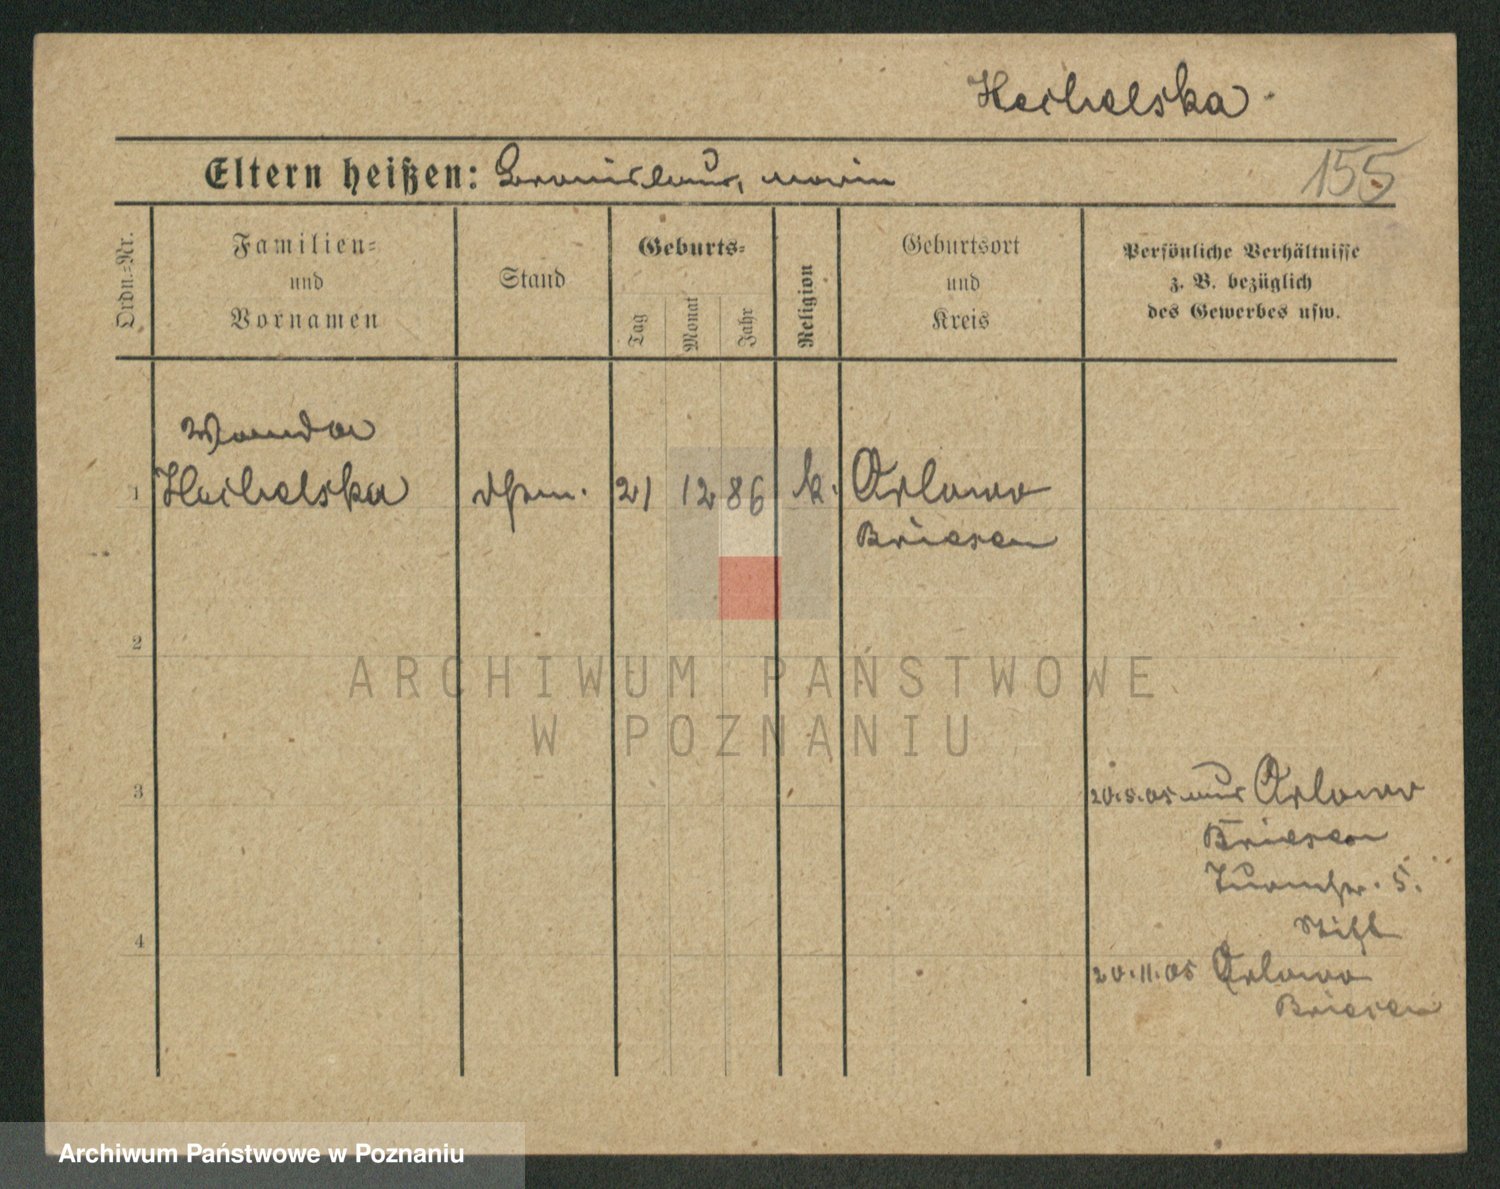 Heihelska
Eltern heißen: Bronislaus, Maria
155
Ordn.=Nr.
Familien=
und
Vornamen
Stand
Geburts=
Tag
Monat
Jahr
Religion
Geburtsort
und
Kreis
Persönliche Verhältnisse
z. B. bezüglich
des Gewerbes usw.
Wanda
1 Heihelska 21 12 86 k. Orlowo
Briesen
2
ARCHIWUM PAŃSTWOWE
W POZNANIU
3
20.8.05 aus Orlowo
Briesen
5.
Stift
4
20.11.05 Orlowo
Briesen
Archiwum Państwowe w Poznaniu